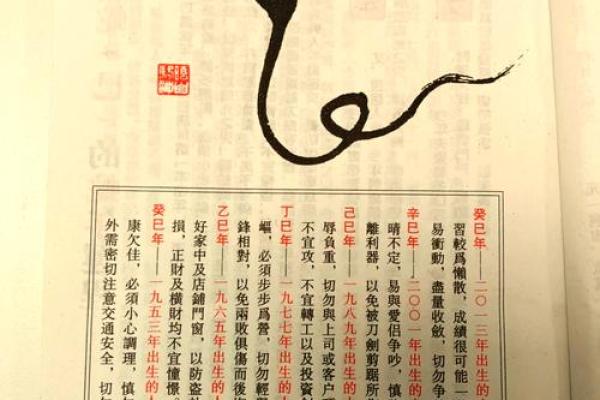 癸巳年——二〇一三年出生的
習較爲懶散，成績很可能一
易衝動，盡量收斂，切勿爭
辛巳年——二〇〇一年出生的
晴不定，易與愛侶爭吵，慎
離利器，以免被刀劍剪鋸所
己巳年——一九八九年出生的
辱負重，切勿與上司或客戶
不宜攻，不宜轉工以及投資
丁巳年——一九七七年出生的
嶇，必須步步爲營，切勿輕
鋒相對，以免兩敗俱傷而後
乙巳年——一九六五年出生的
好家中及店鋪門窗，以防盜
損，正財及橫財均不宜憧憬
癸巳年——一九五三年出生的
康欠佳，必須小心調理，慎
外需密切注意交通安全，切